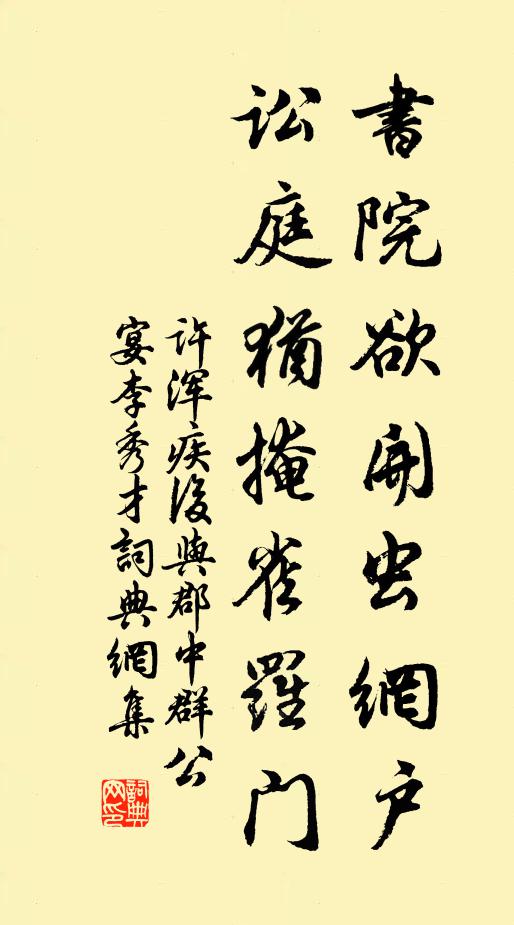 書院欲開虫網户
訟庭猶掩雀羅门
许浑疾後與郡中群公
宴李秀才詞典網集
詞典网印